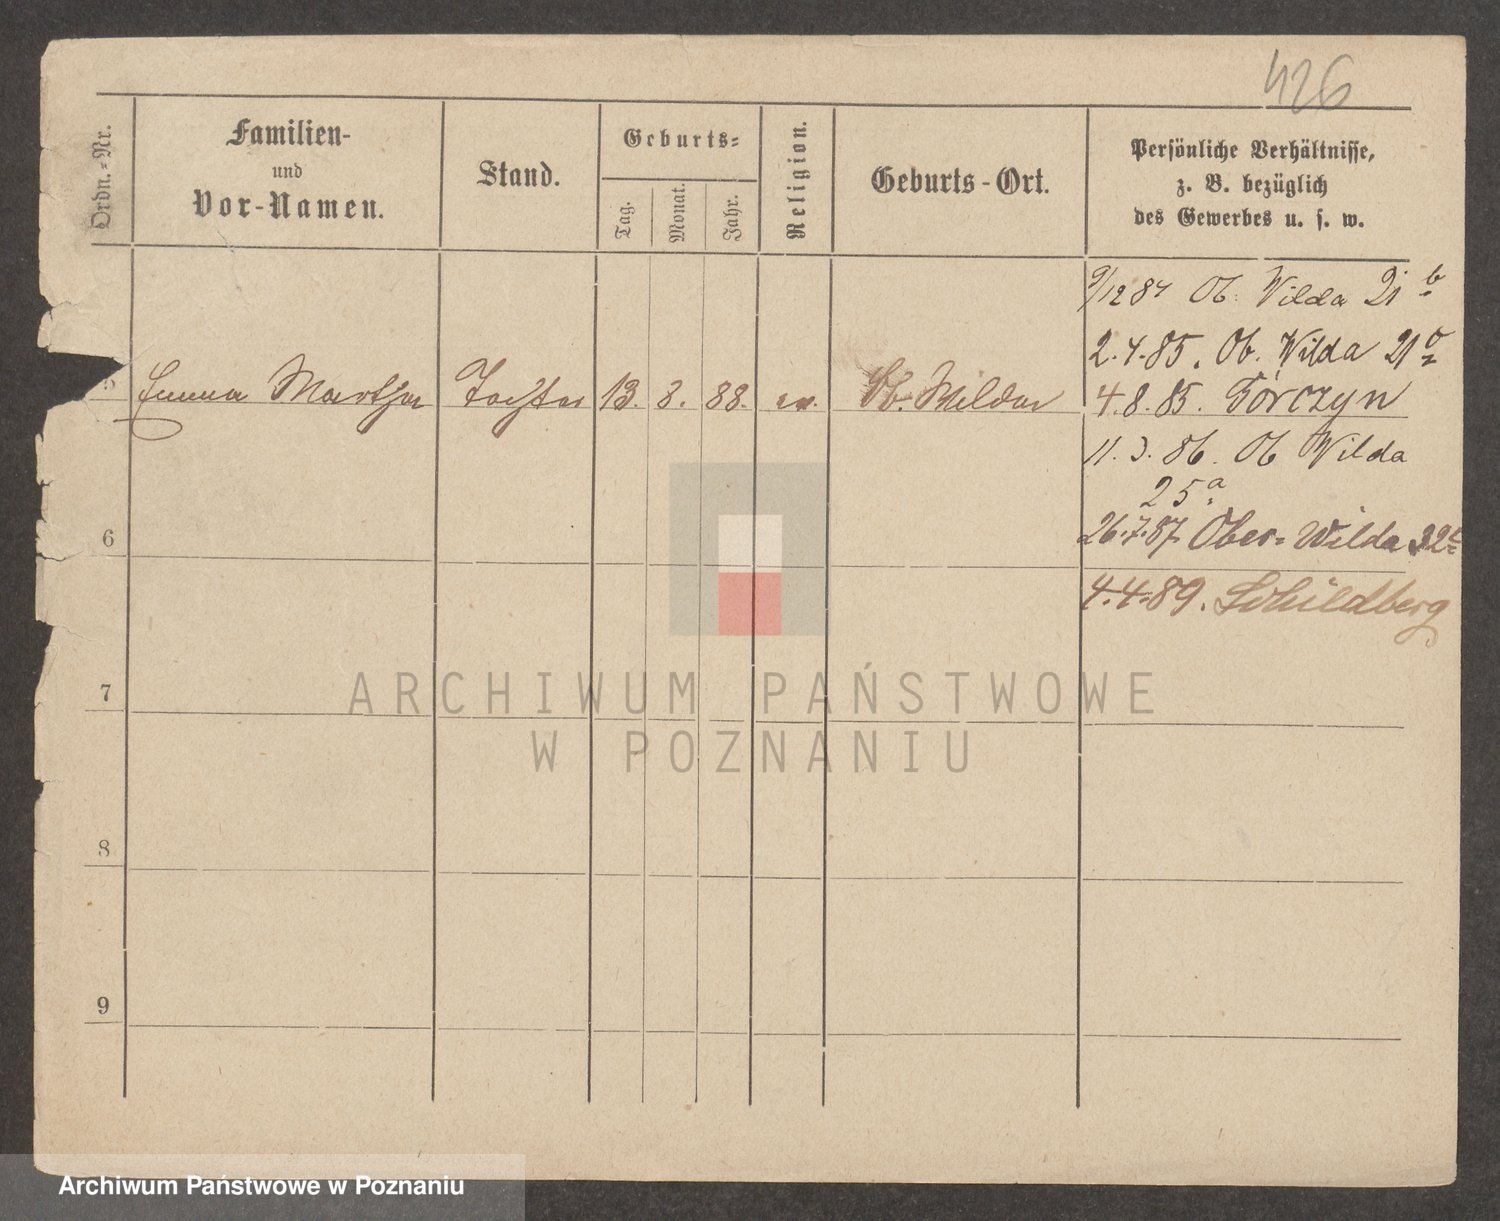 426
Ordn.-Nr.
Familien-
und
Vor-Namen.
Stand.
Geburts-
Tag.
Monat.
Jahr.
Religion.
Geburts-Ort.
Persönliche Verhältnisse,
z. B. bezüglich
des Gewerbes u. s. w.
9/12 84 Ob. Wilda 21 b
2.4.85. Ob. Wilda 21 a
5 Emma Martha Tochter 13. 3. 88. ev. Ob. Wilda 4.8.85. Górczyn
11.3.86. Ob Wilda
25 a
6 26.7.87 Ober-Wilda 32
4.4.89. Schildberg
7
ARCHIWUM PAŃSTWOWE
W POZNANIU
8
9
Archiwum Państwowe w Poznaniu